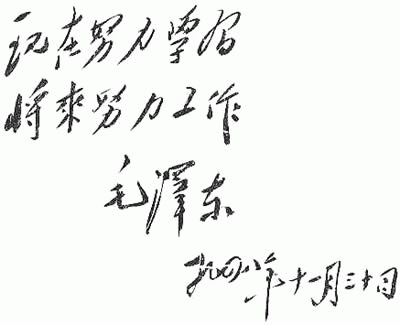 现在努力學習
將來努力工作
毛澤东
一九四八年十一月三十日